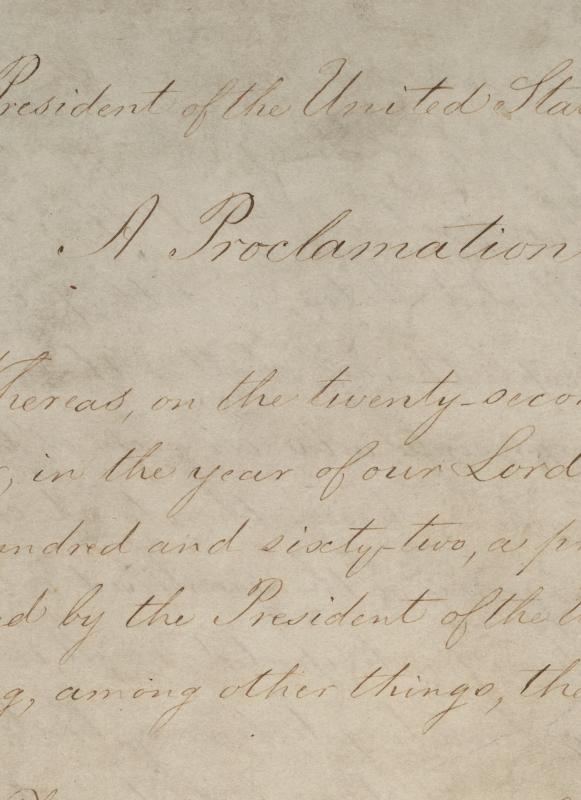 President of the United Sta
A Proclamation
Whereas, on the twenty-secon
, in the year of our Lord
undred and sixty-two, a pr
ed by the President of the U
g, among other things, the